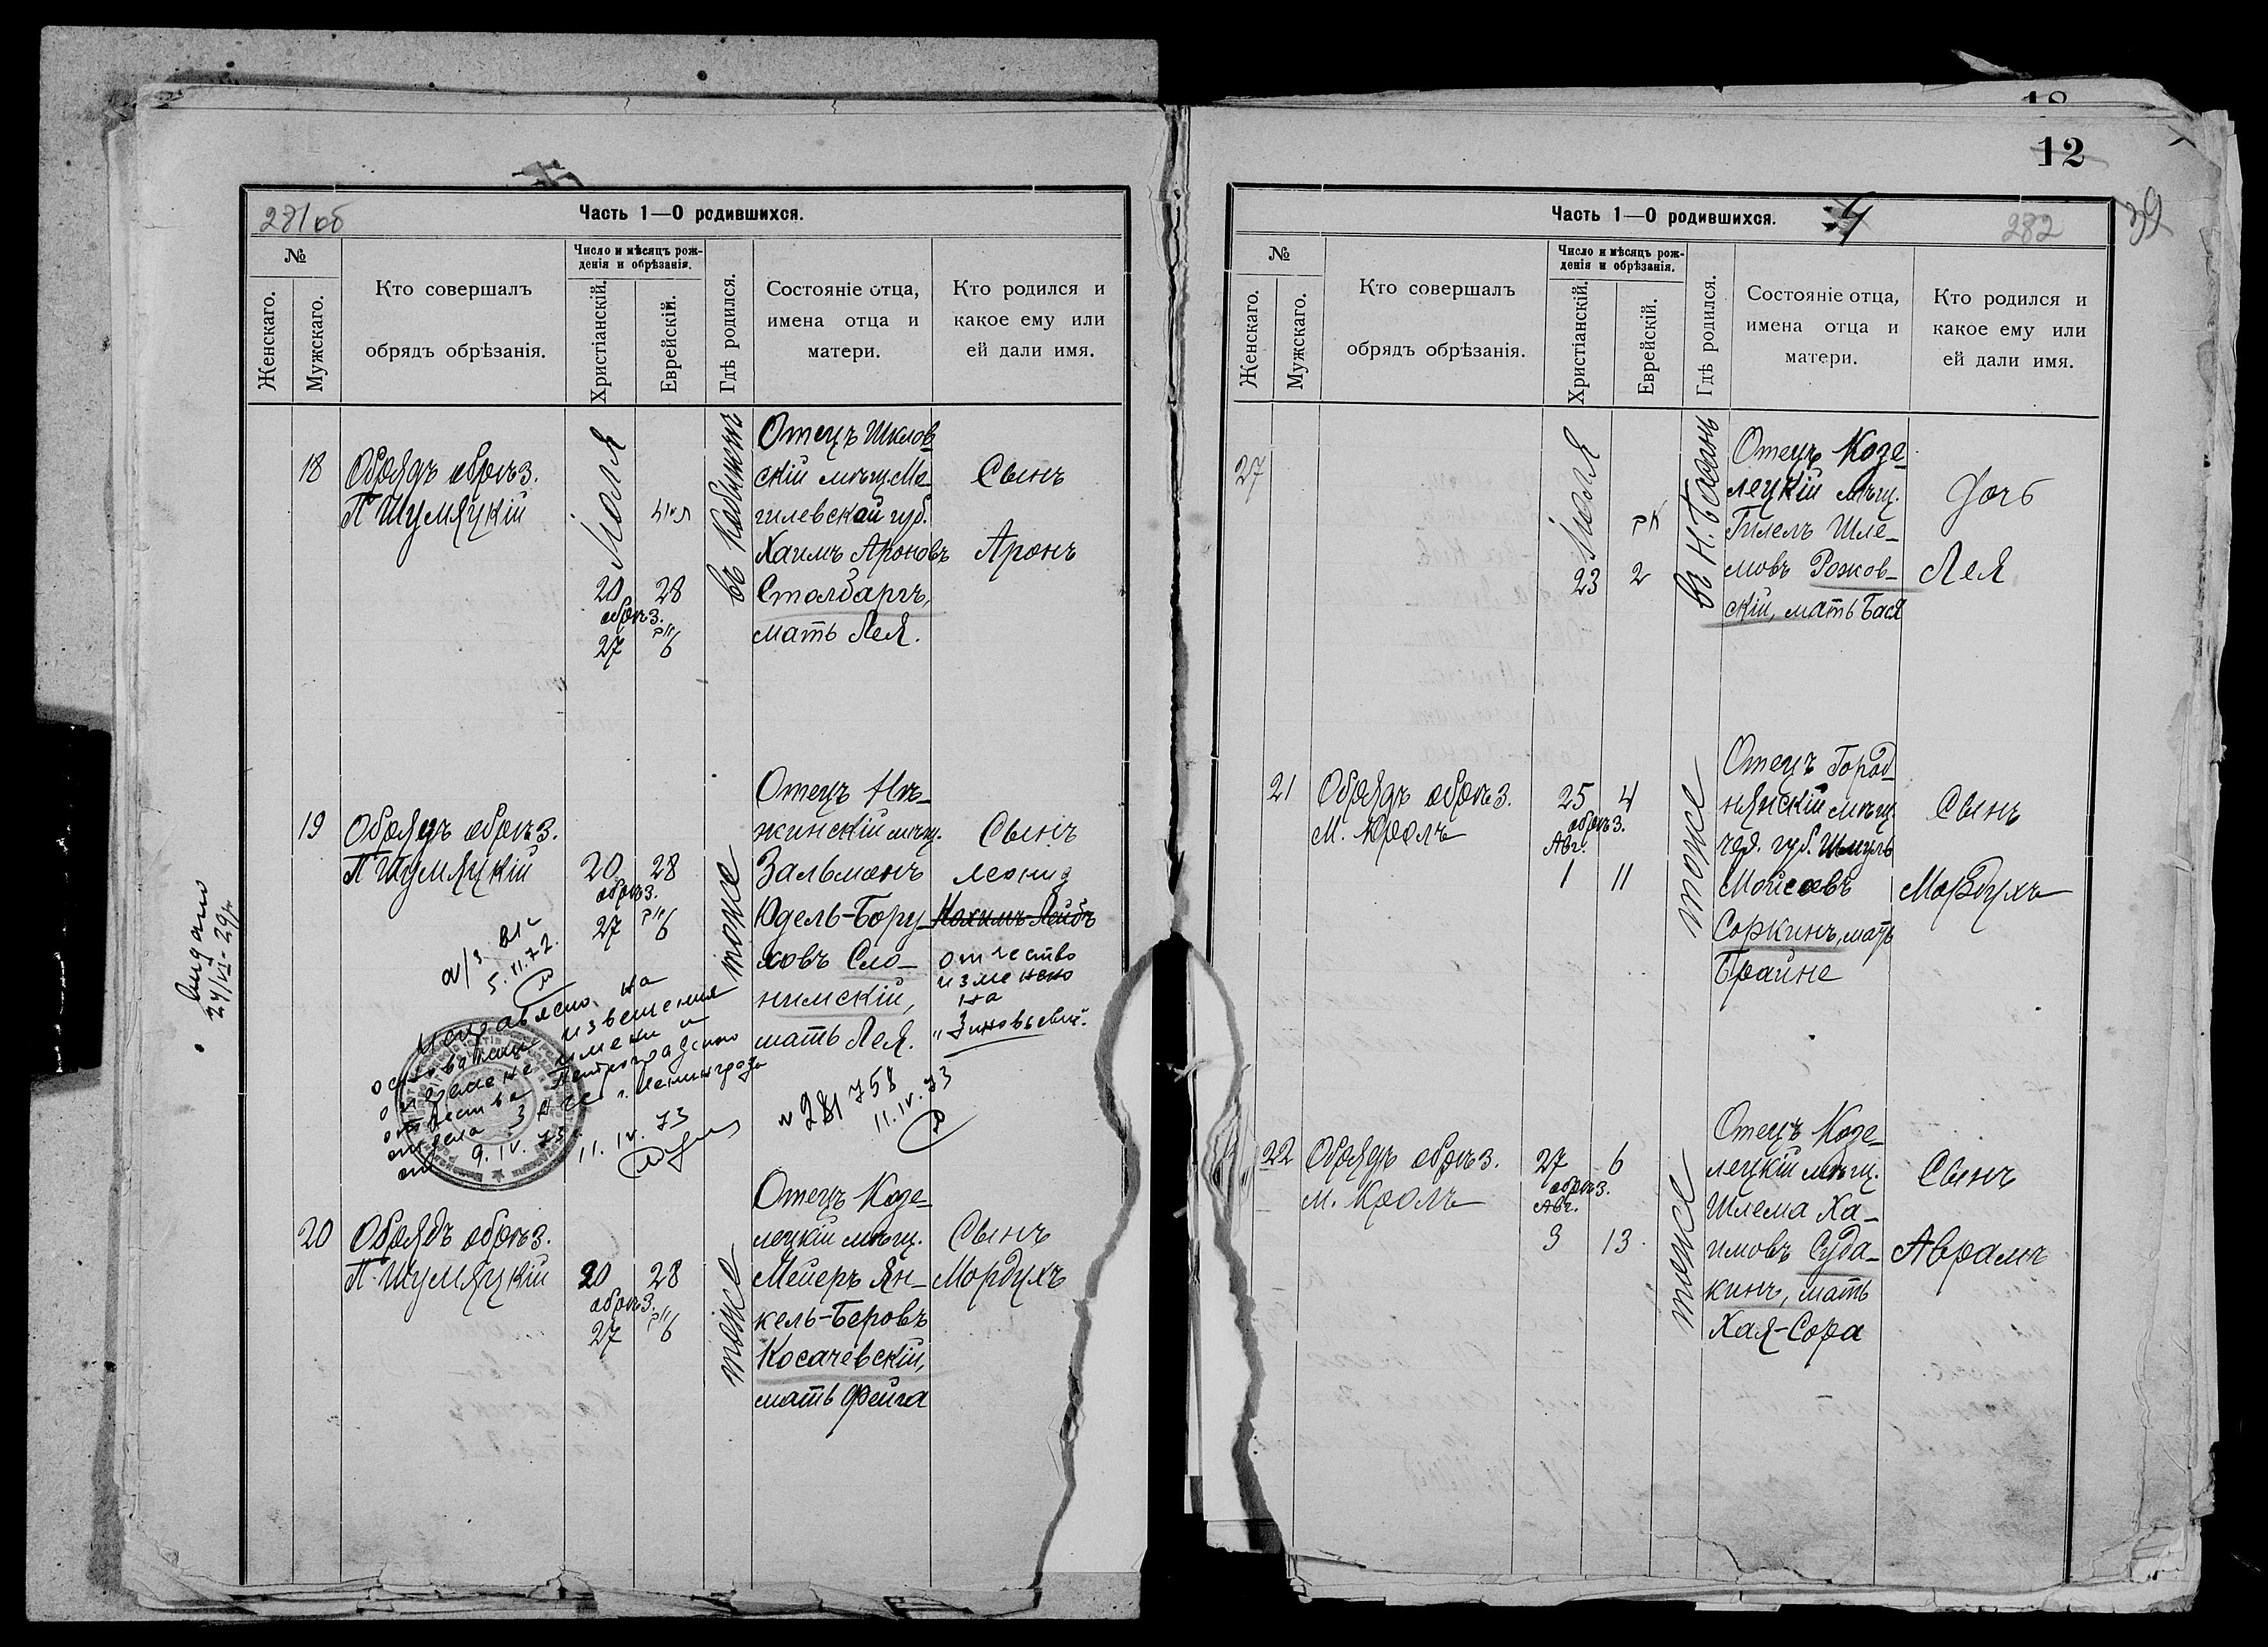 281 об
Часть 1—О родившихся.
№
Женскаго.
Мужскаго.
Кто совершалъ
обрядъ обрѣзанія.
Число и мѣсяцъ рож-
денія и обрѣзанія.
Христіанскій.
Еврейскій.
Гдѣ родился.
Состояніе отца,
имена отца и
матери.
Кто родился и
какое ему или
ей дали имя.
18
Обрядъ обрѣз.
П Шумяцкій
Іюля
20 28
обрѣз.
27 6
въ Кобыжчѣ
Отецъ Шклов
скій мѣщ. Мо-
гилевской губ.
Хаимъ Ароновъ
Столбаргъ,
мать Лея.
Сынъ
Аронъ
19
Обрядъ обрѣз.
П Шумяцкій
20 28
обрѣз.
27 6
тоже
Отецъ Нѣ-
жинскій мѣщ.
Зальманъ
Юдель-Бору-
ховъ Сло-
нимскій,
мать Лея.
Сынъ
Леонид
Нохимъ-Лейбъ
отчество
изменено
на
„Зиновьевич".
5.II.72.
исправлено на
основании извещения
о перемене имени и
отчества Петроградского
отдела ЗАГС г. Ленинграда
от 9.IV.73
11.IV.73
№ 281758
11.IV.73
Выдано
24/VI-29г.
20
Обрядъ обрѣз.
П. Шумяцкій
20 28
обрѣз.
27 6
тоже
Отецъ Козе-
лецкій мѣщ.
Мейеръ Ян-
кель-Беровъ
Косачевскій,
мать Фейга
Сынъ
Мордухъ
12
39
Часть 1—О родившихся.
4
282
№
Женскаго.
Мужскаго.
Кто совершалъ
обрядъ обрѣзанія.
Число и мѣсяцъ рож-
денія и обрѣзанія.
Христіанскій.
Еврейскій.
Гдѣ родился.
Состояніе отца,
имена отца и
матери.
Кто родился и
какое ему или
ей дали имя.
27
Іюля
23 2
въ Н. Басань
Отецъ Козе-
лецкій мѣщ.
Гилелъ Шле-
мовъ Рожов-
скій, мать Бася
Дочь
Лея
21
Обрядъ обрѣз.
М. Кролъ
25 4
обрѣз.
Авг.
1 11
тоже
Отецъ Город
нянскій мѣщ.
чер. губ. Шмуль
Мойсеевъ
Соркинъ, мать
Брайне
Сынъ
Мордухъ
22
Обрядъ обрѣз.
М. Кролъ
27 6
обрѣз.
Авг.
3 13
тоже
Отецъ Козе-
лецкій мѣщ.
Шлема Ха-
имовъ Суда-
кинъ, мать
Хая-Сора
Сынъ
Аврамъ